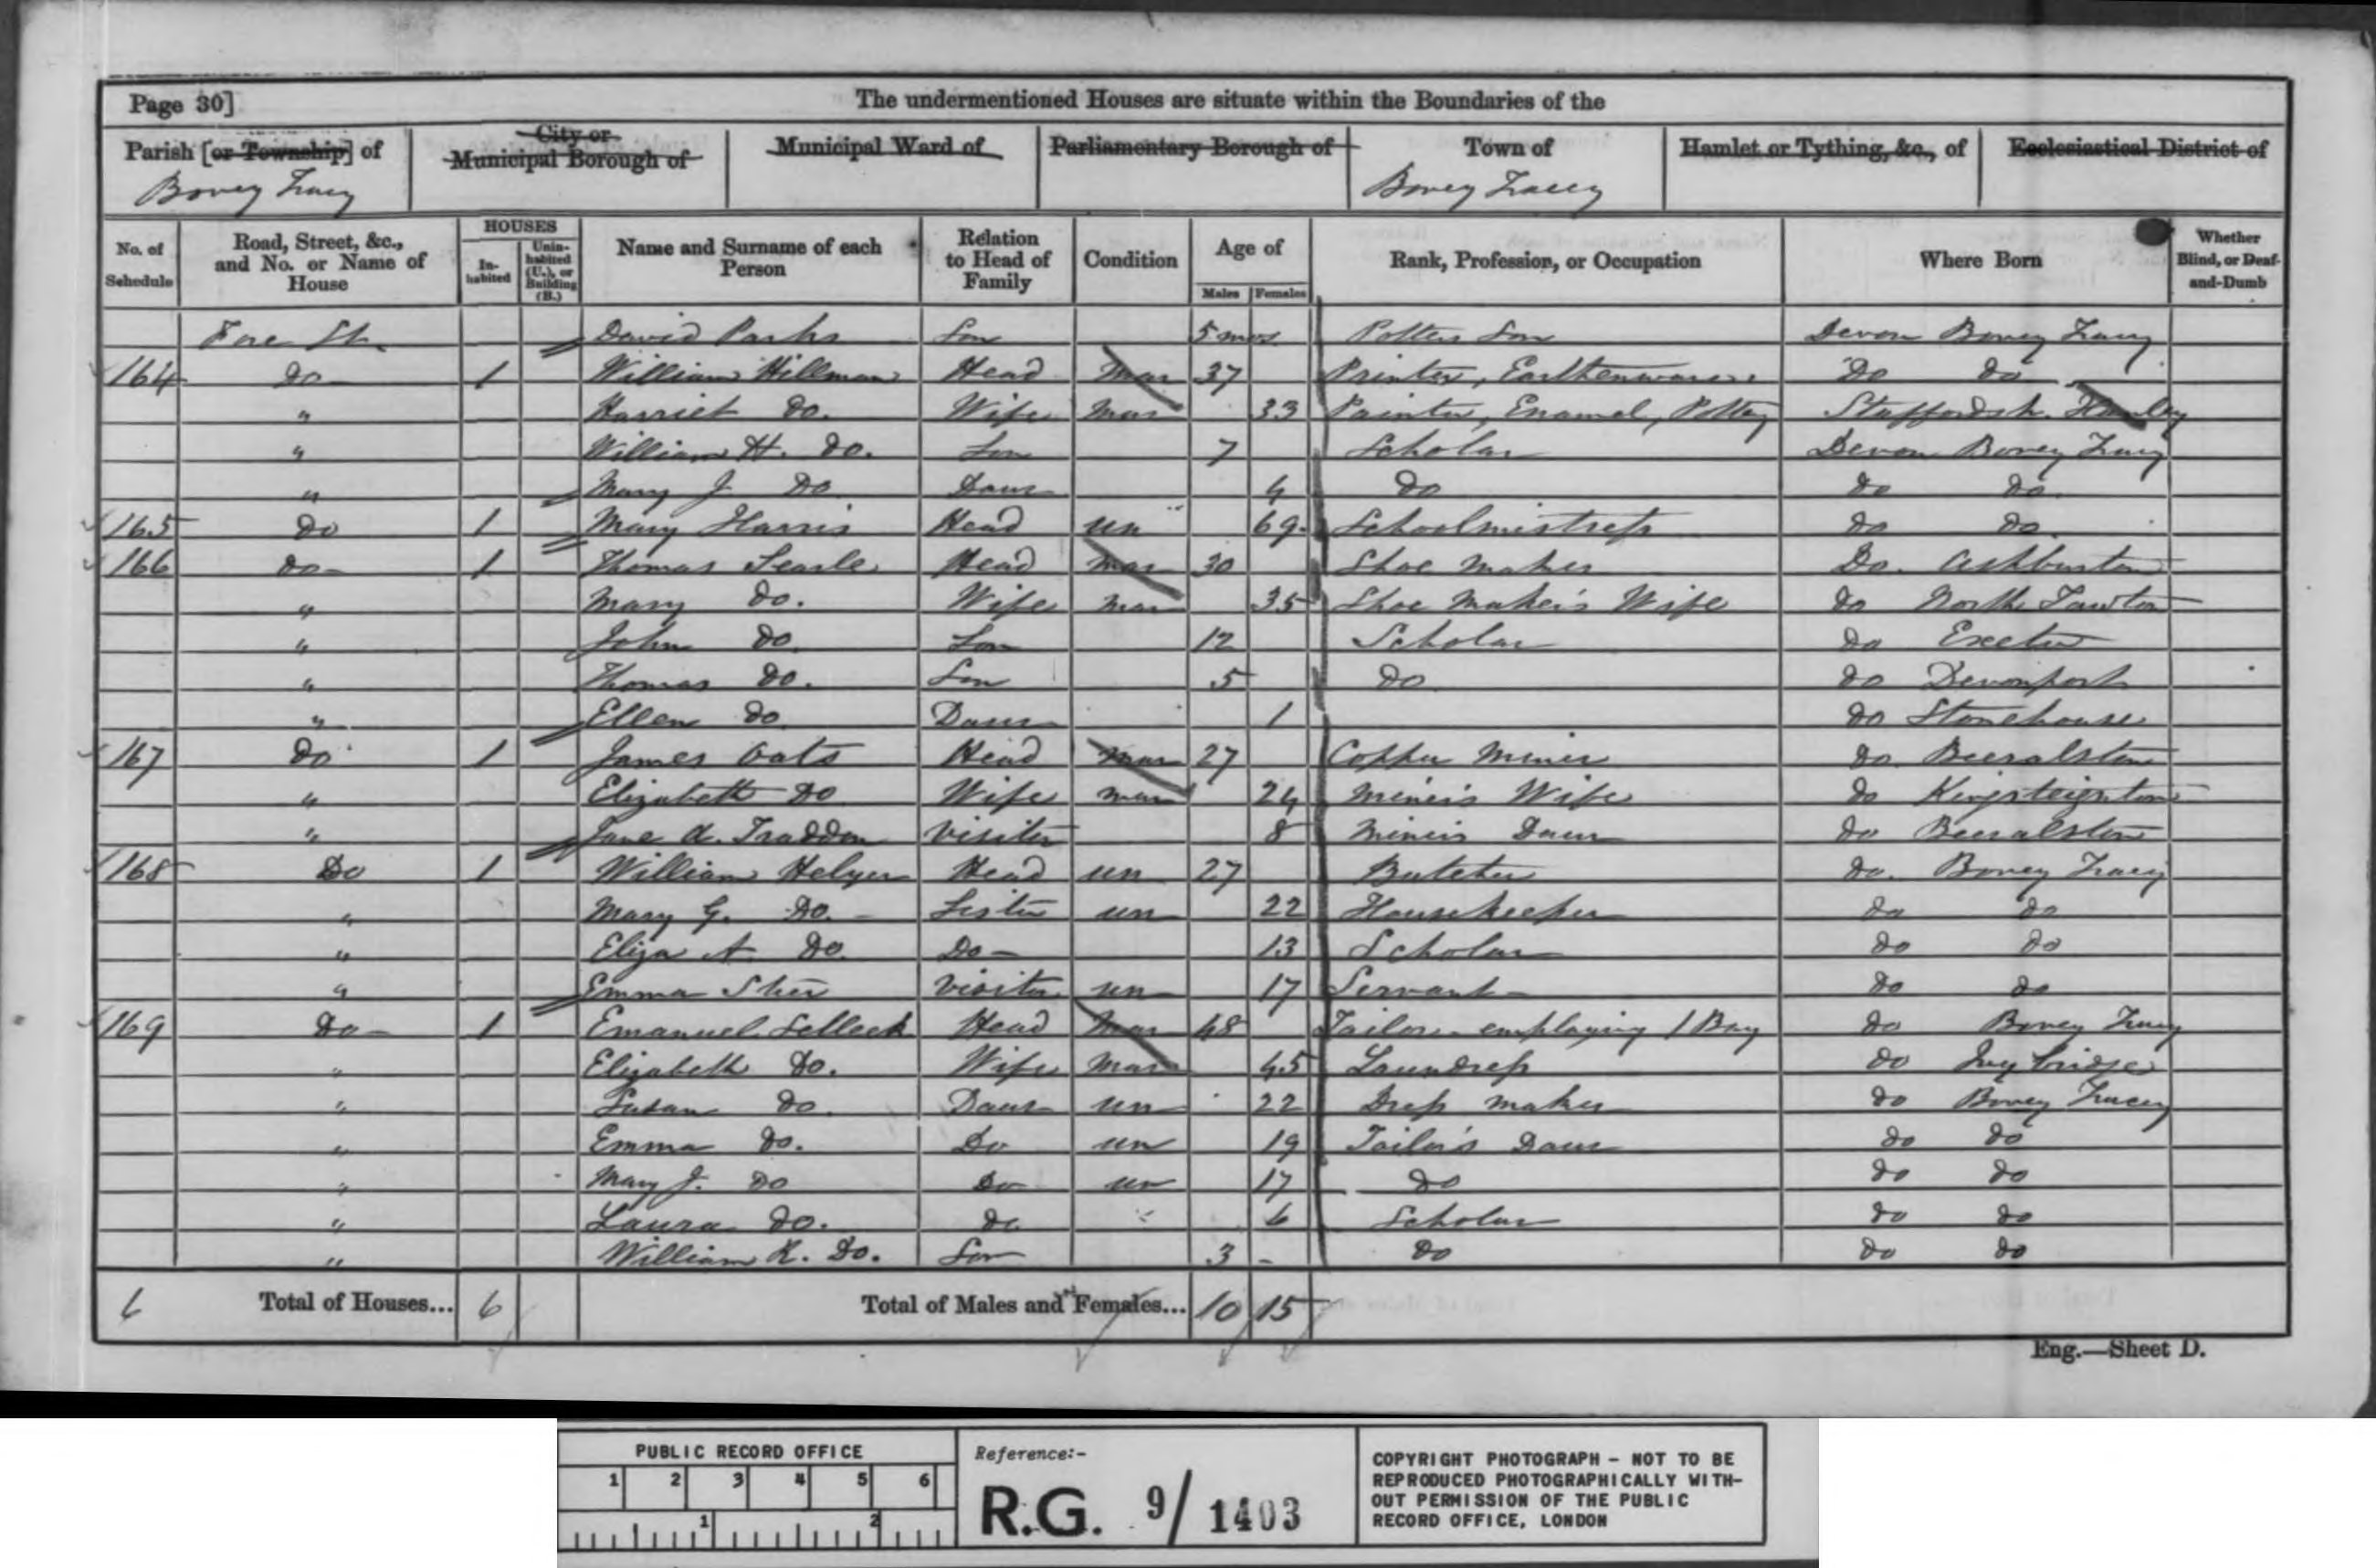 Page 30] The undermentioned Houses are situate within the Boundaries of the
Parish [or Township] of City or Municipal Borough of Municipal Ward of Parliamentary Borough of Town of Hamlet or Tything, &c., of Ecclesiastical District of
Bovey Tracey Bovey Tracey
No. of Schedule Road, Street, &c., and No. or Name of House HOUSES Inhabited Uninhabited (U.), or Building (B.) Name and Surname of each Person Relation to Head of Family Condition Age of Males Females Rank, Profession, or Occupation Where Born Whether Blind, or Deaf-and-Dumb
Fore St. David Parks Son 5 mos Potters Son Devon Bovey Tracey
164 do 1 William Hillman Head Mar 37 Printer, Earthenware Do do
" Harriet do. Wife Mar 33 Painter, Enamel, Pottery Staffordsh. Hanley
" William H. do. Son 7 Scholar Devon Bovey Tracey
" Mary J do Daur 4 do do do
165 do 1 Mary Harris Head un 69 Schoolmistress do do
166 do 1 Thomas Searle Head Mar 30 Shoe Maker Do. Ashburton
" Mary do. Wife Mar 35 Shoe Maker's Wife do North Tawton
" John do. Son 12 Scholar do Exeter
" Thomas do. Son 5 do do Devonport
" Ellen do Daur 1 do Stonehouse
167 do 1 James Oats Head Mar 27 Copper Miner do Beeralston
" Elizabeth do Wife Mar 24 Miner's Wife do Kingsteignton
" Jane A. Visitor 8 Miners Daur do Beeralston
168 Do 1 William Helyer Head un 27 Butcher do. Bovey Tracey
" Mary G. do. Sister un 22 Housekeeper do do
" Eliza A do. Do 13 Scholar do do
" Emma Visitor un 17 Servant do do
169 Do 1 Emanuel Selleck Head Mar 48 Tailor employing 1 Boy do Bovey Tracey
" Elizabeth do. Wife Mar 45 Laundress do Ivybridge
" Susan do. Daur un 22 Dress maker do Bovey Tracey
" Emma do. Do un 19 Tailor's Daur do do
" Mary J. do Do un 17 do do do
" Laura do. do 6 Scholar do do
" William R. Do. Son 3 do do do
6 Total of Houses... 6 Total of Males and Females... 10 15
Eng.—Sheet D.
PUBLIC RECORD OFFICE
1 2 3 4 5 6
1 2
Reference:-
R.G. 9/1403
COPYRIGHT PHOTOGRAPH - NOT TO BE
REPRODUCED PHOTOGRAPHICALLY WITH-
OUT PERMISSION OF THE PUBLIC
RECORD OFFICE, LONDON